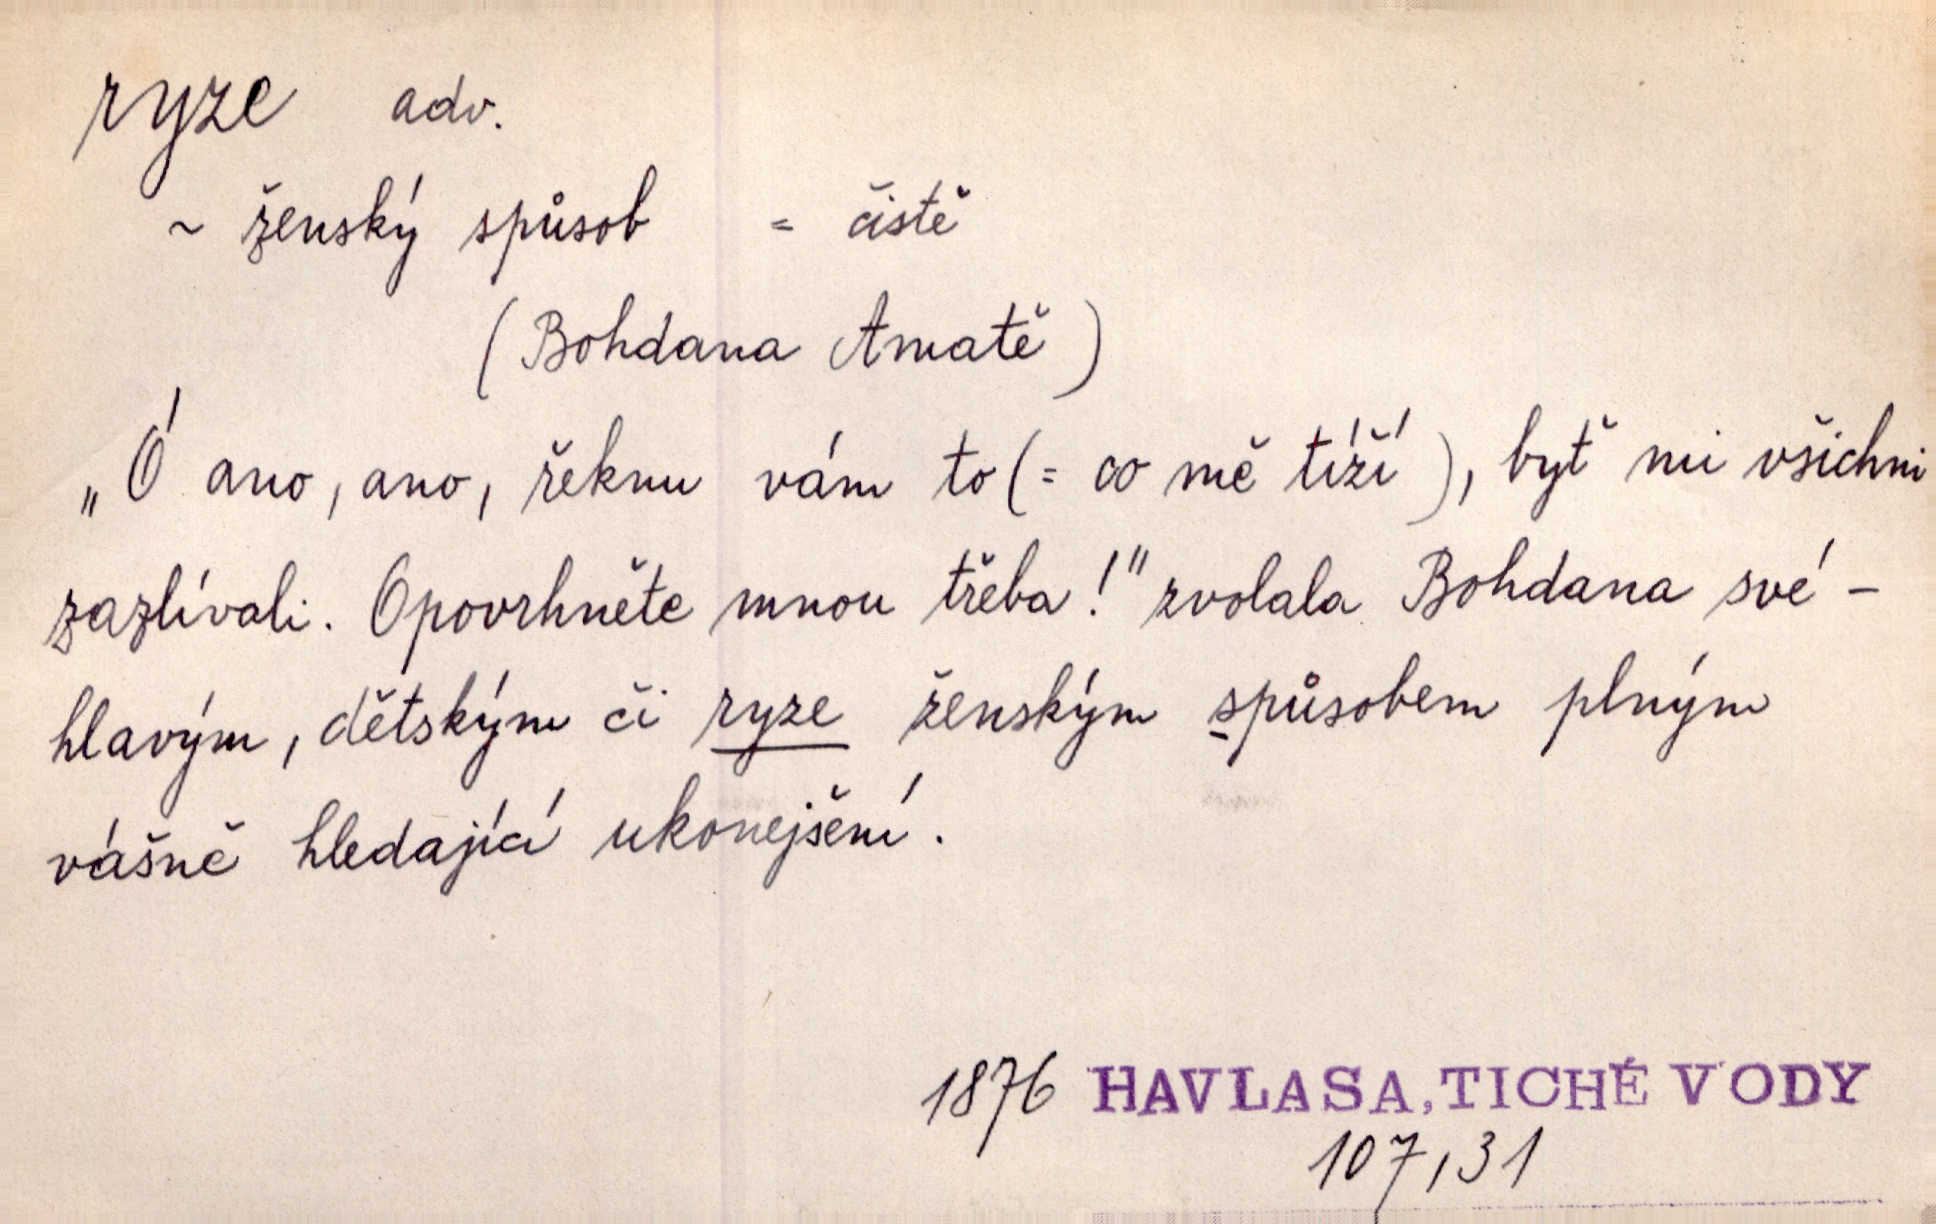 ryze adv.
~ ženský spůsob = čistě
(Bohdana Amatě)
„Ó ano, ano, řeknu vám to (= co mě tíží), byť mi všichni
zazlívali. Opovrhněte mnou třeba!" zvolala Bohdana své-
hlavým, dětským či ryze ženským spůsobem plným
vášně hledající ukonejšení.
1876 HAVLASA, TICHÉ VODY
107,31